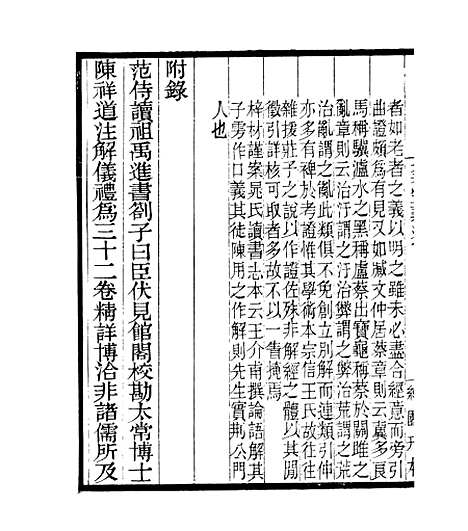 者如老者之義以明之雖未必盡合經意而旁引
曲證頗為有見又如臧文仲居蔡章則云冀多良
馬稱驥瀘水之黑稱盧蔡出寶龜稱蔡於關雎之
亂章則云治汙謂之汙治弊謂之弊治荒謂之荒
治亂謂之亂此類俱不免創立別解而連類引伸
亦多有裨於考證惟其學術本宗信王氏故往往
雜援莊子之說以作證佐殊非解經之體以其閒
徵引詳核可取者多故不以一眚掩焉
梓材謹案晁氏讀書志本云王介甫撰論語解其
子雱作口義其徒陳用之作解則先生實荆公門
人也
附錄
范侍讀祖禹進書劄子曰臣伏見館閣校勘太常博士
陳祥道注解儀禮為三十二卷精詳博洽非諸儒所及